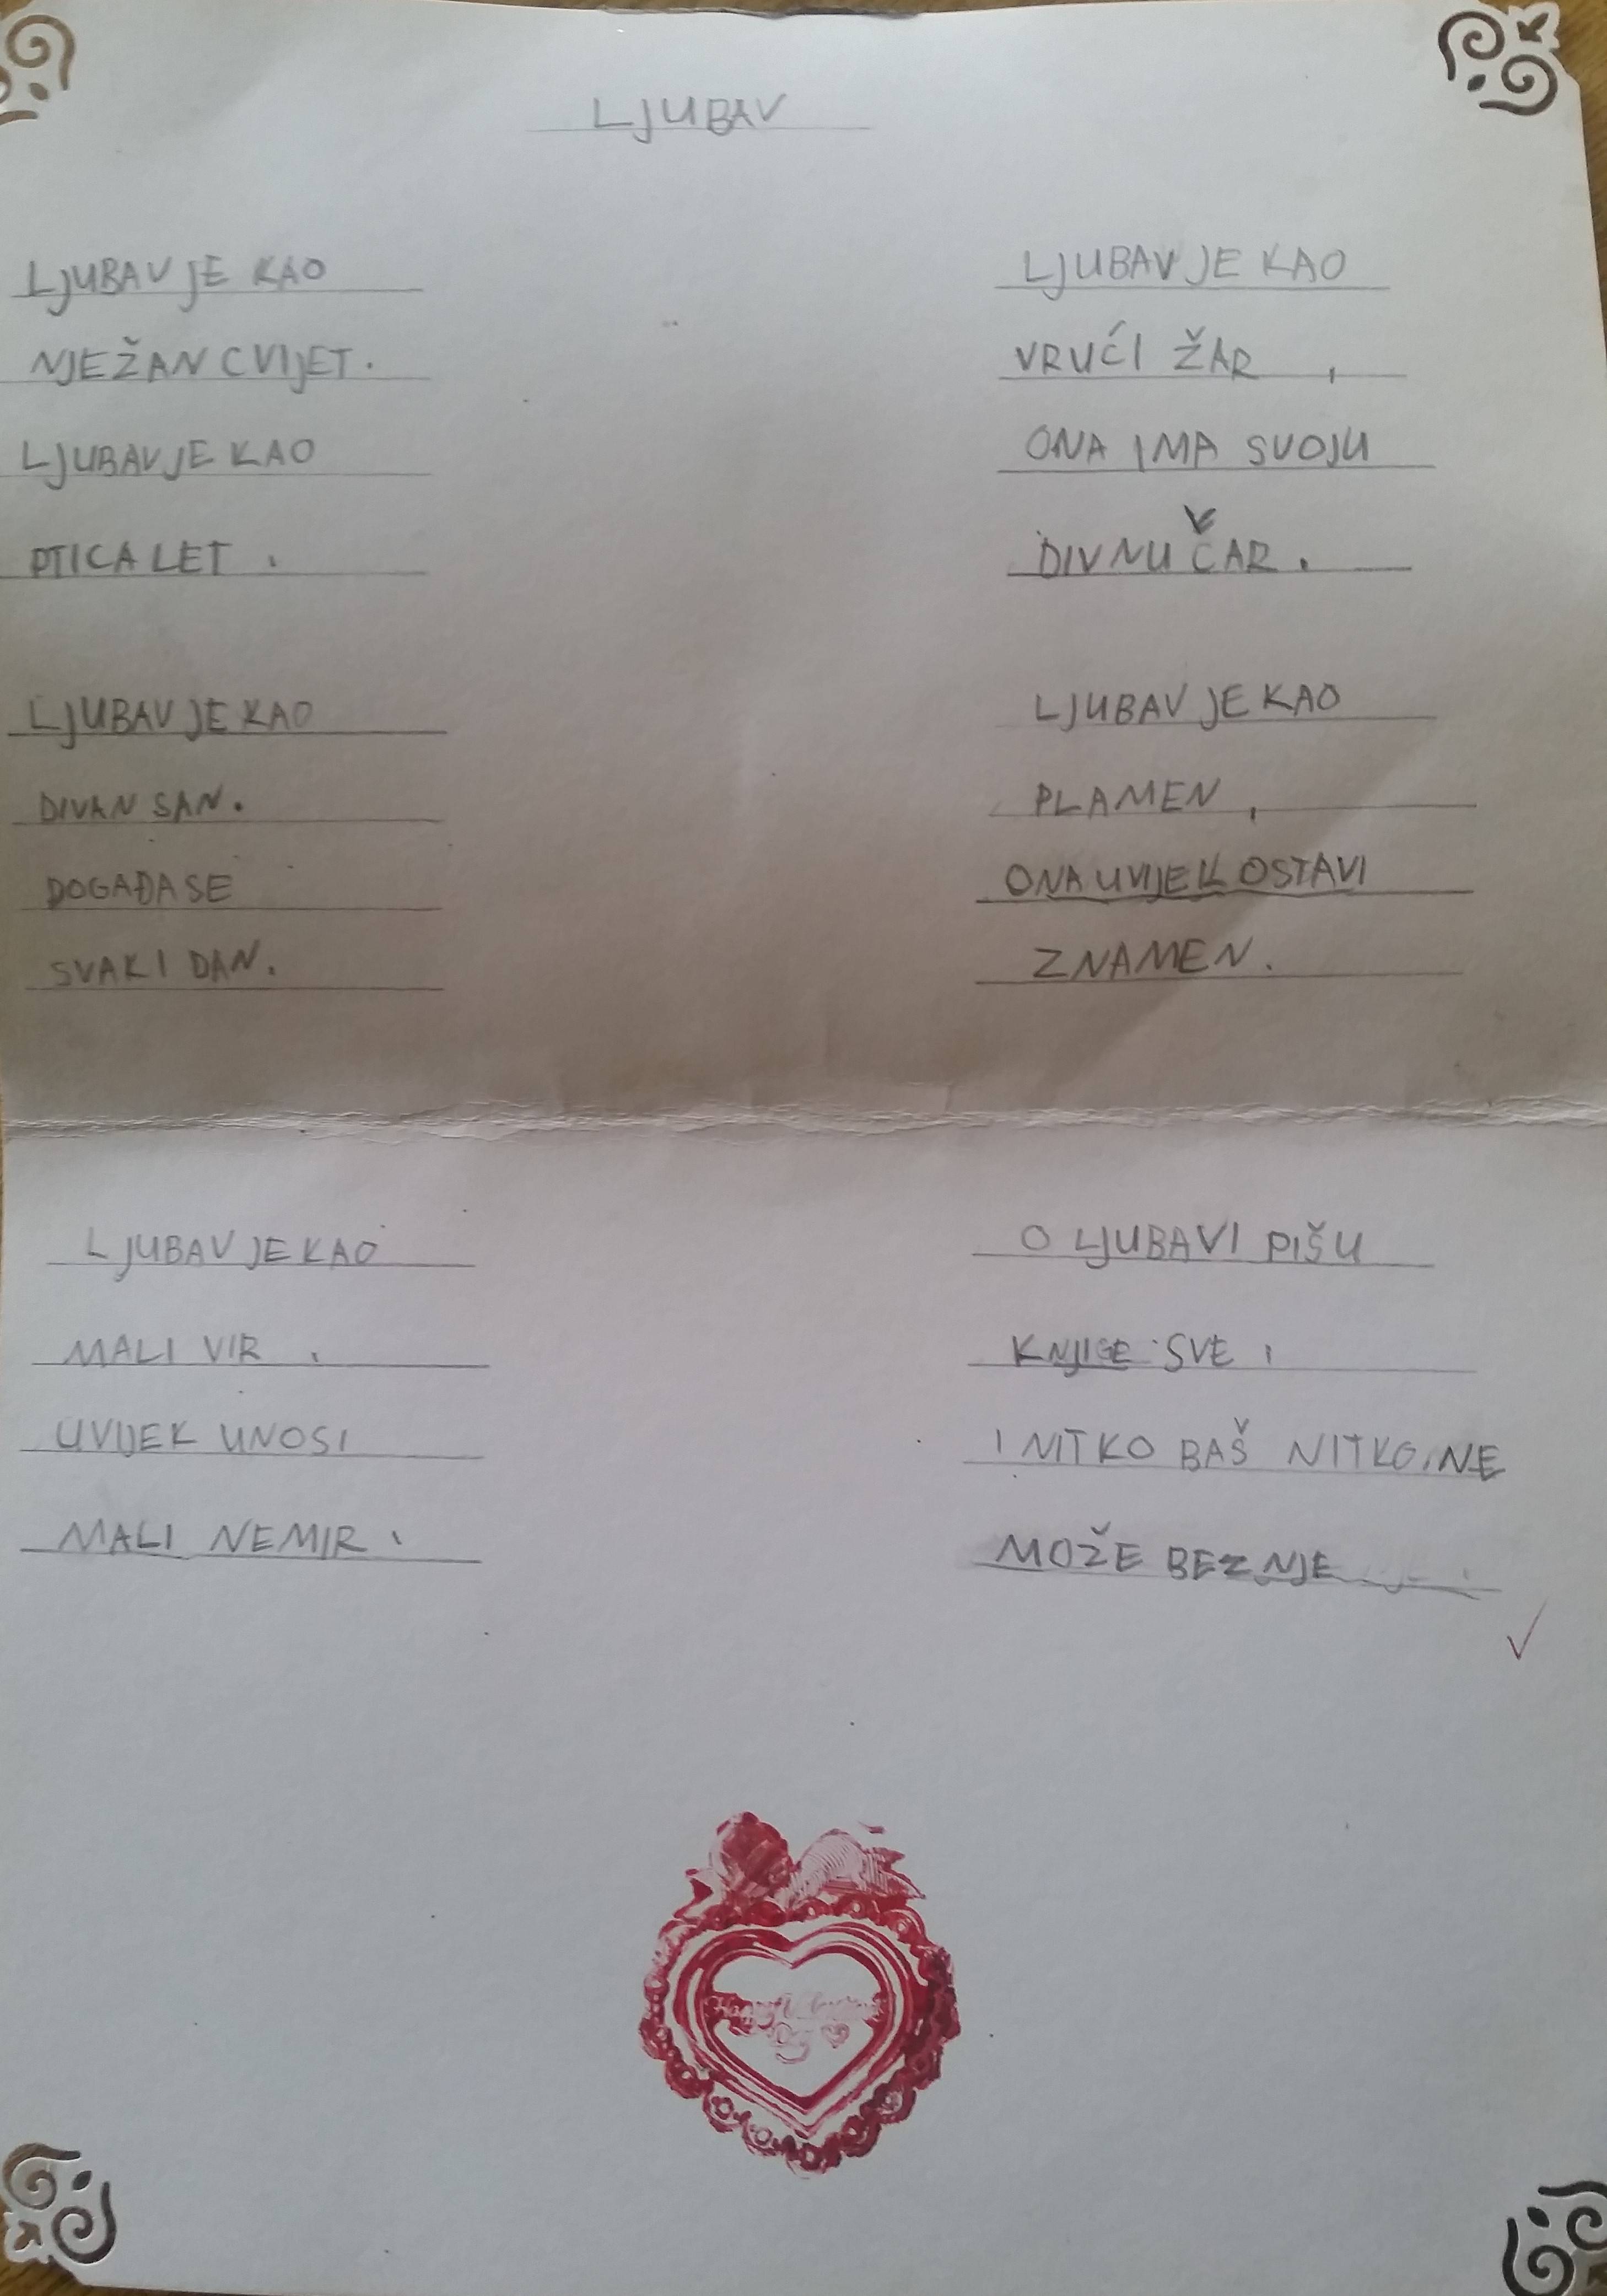 LJUBAV
LJUBAV JE KAO
NJEŽAN CVIJET.
LJUBAV JE KAO
PTICA LET.
LJUBAV JE KAO
DIVAN SAN.
DOGAĐA SE
SVAKI DAN.
LJUBAV JE KAO
MALI VIR,
UVIJEK UNOSI
MALI NEMIR.
LJUBAV JE KAO
VRUĆI ŽAR,
ONA IMA SVOJU
DIVNU ČAR.
LJUBAV JE KAO
PLAMEN,
ONA UVIJEK OSTAVI
ZNAMEN.
O LJUBAVI PIŠU
KNJIGE SVE,
I NITKO BAŠ NITKO, NE
MOŽE BEZ NJE
Happy
Day